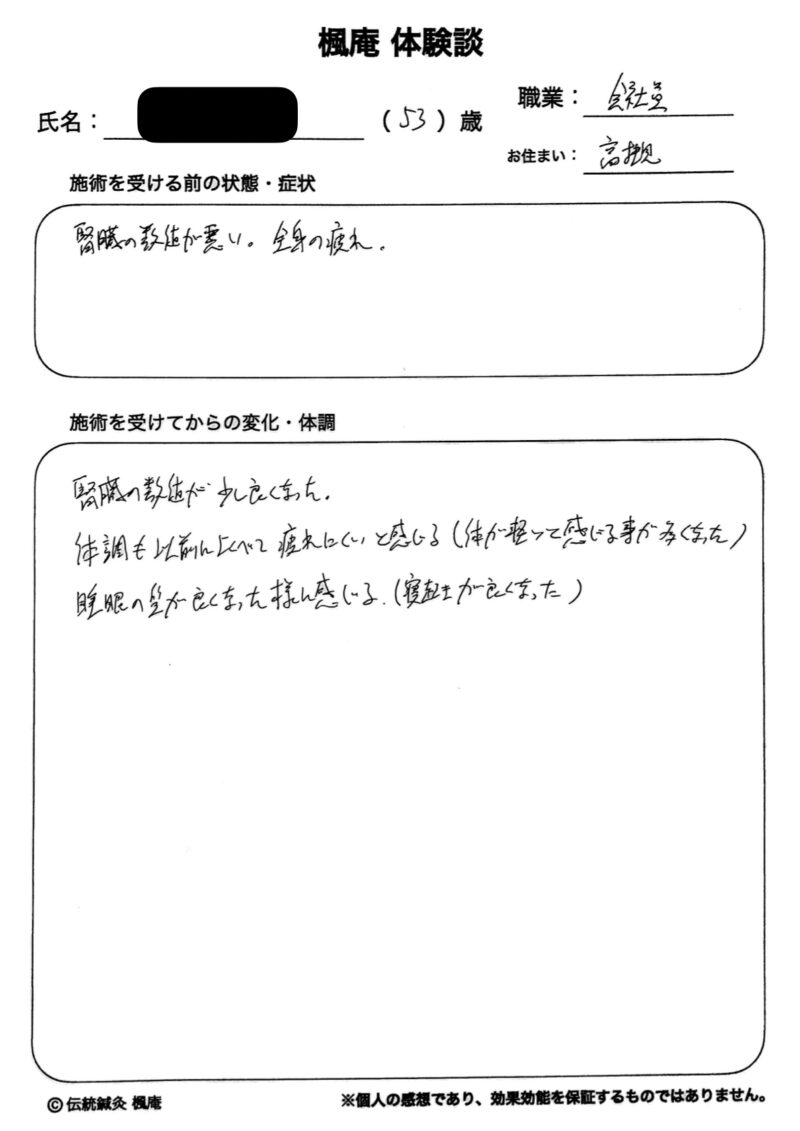 楓庵 体験談
職業： 会社員
氏名： （53）歳
お住まい： 高槻
施術を受ける前の状態・症状
腎臓の数値が悪い。全身の疲れ.
施術を受けてからの変化・体調
腎臓の数値が少し良くなった.
体調も以前に比べて疲れにくいと感じる（体が軽いって感じる事が多くなった）
睡眠の質が良くなった様に感じる.（寝起きが良くなった）
© 伝統鍼灸 楓庵
※個人の感想であり、効果効能を保証するものではありません。